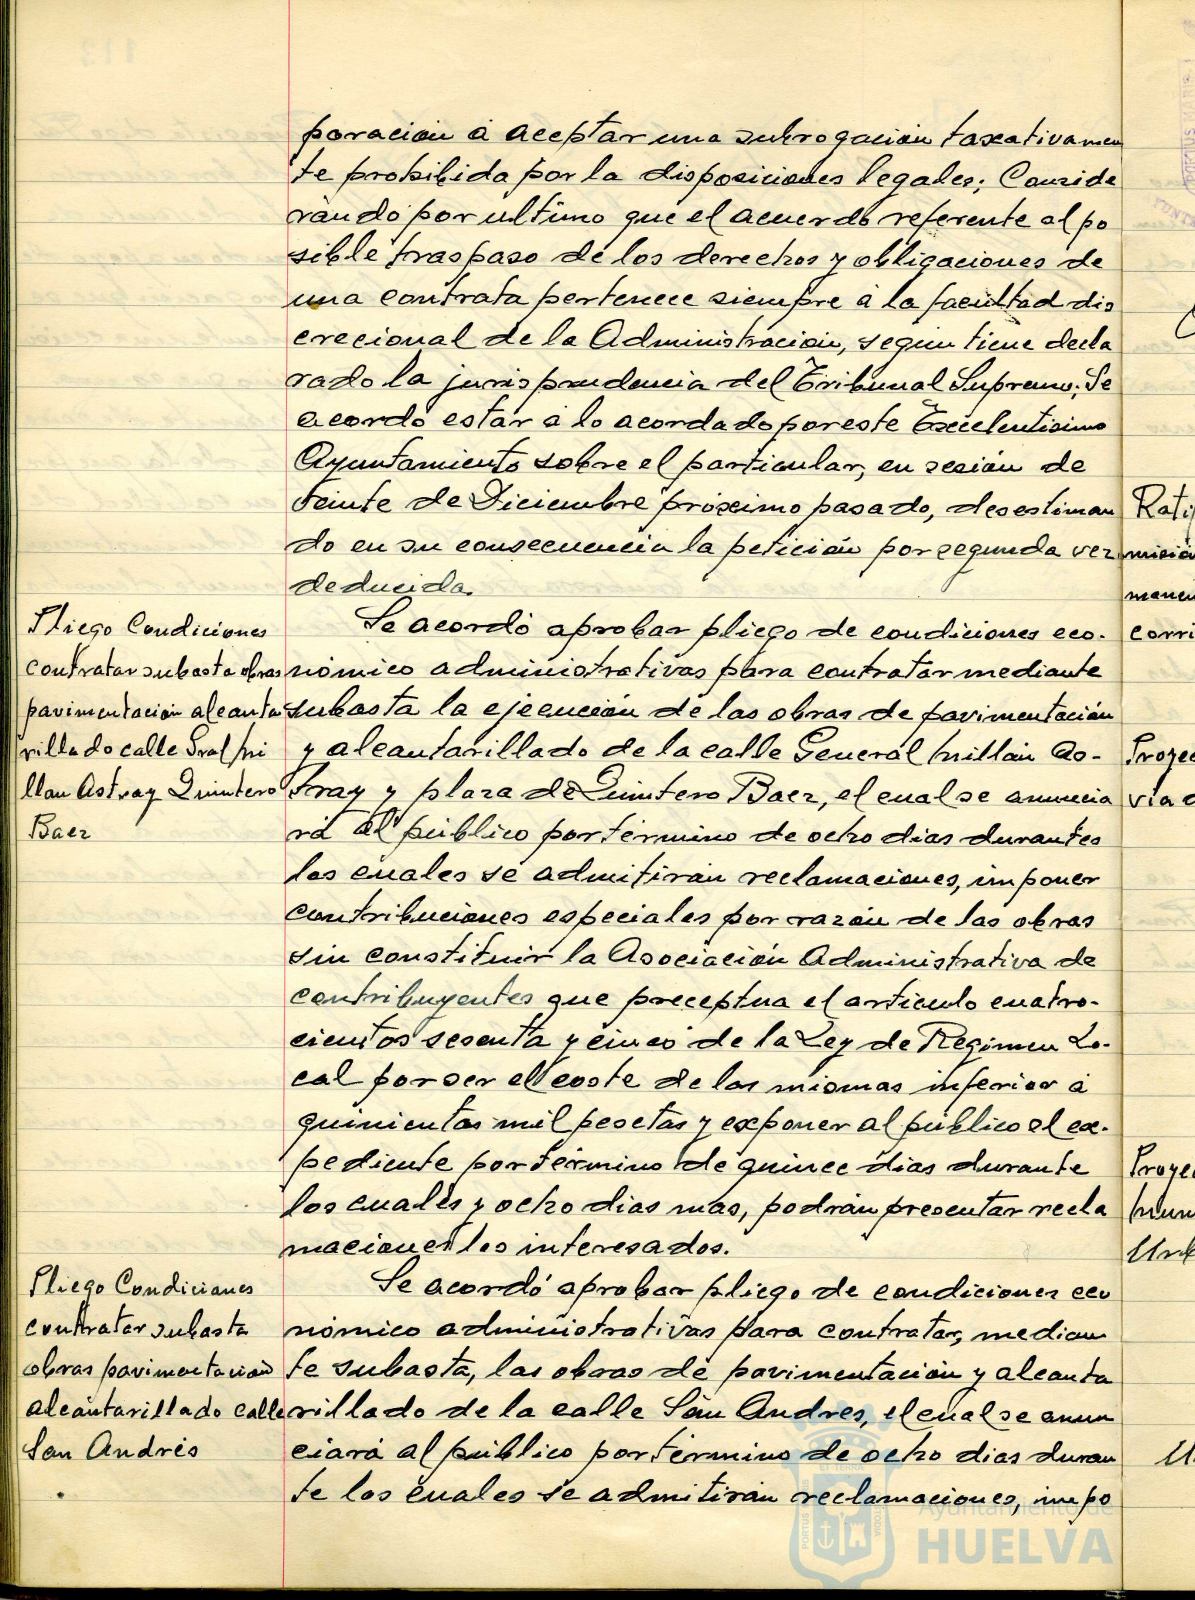 poración á aceptar una subrogación taxativamen
te prohibida por la disposiciones legales; Conside
rando por ultimo que el acuerdo referente al po
sible traspaso de los derechos y obligaciones de
una contrata pertenece siempre á la facultad dis
crecional de la Administración, segun tiene decla
rado la jurisprudencia del Tribunal Supremo; Se
acordó estar á lo acordado por este Excelentisimo
Ayuntamiento sobre el particular, en sesión de
veinte de Diciembre próximo pasado, desestiman
do en su consecuencia la petición por segunda vez
deducida.
Pliego Condiciones
contratar subasta obras
pavimentación alcanta
rillado calle Gral Mi
llan Astray Quintero
Baez
Se acordó aprobar pliego de condiciones eco-
nómico administrativas para contratar mediante
subasta la ejecución de las obras de pavimentación
y alcantarillado de la calle General Millán As-
tray y plaza de Quintero Baez, el cual se anuncia
rá al público por término de ocho dias durantes
los cuales se admitirán reclamaciones, imponer
contribuciones especiales por razón de las obras
sin constituir la Asociación Administrativa de
contribuyentes que preceptua el articulo cuatro-
cientos sesenta y cinco de la Ley de Regimen Lo-
cal por ser el coste de las mismas inferior á
quinientas mil pesetas y exponer al público el ex-
pediente por término de quince dias durante
los cuales y ocho dias mas, podrán presentar recla
maciones los interesados.
Pliego Condiciones
contratar subasta
obras pavimentación
alcantarillado calle
San Andrés
Se acordó aprobar pliego de condiciones eco
nómico administrativas para contratar, median
te subasta, las obras de pavimentación y alcanta
rillado de la calle San Andres, el cual se anun
ciará al público por término de ocho dias duran
te los cuales se admitirán reclamaciones, impo
Rati
misión
manen
corri
Proyec
via
Proyec
Urb
Ayuntamiento de
HUELVA